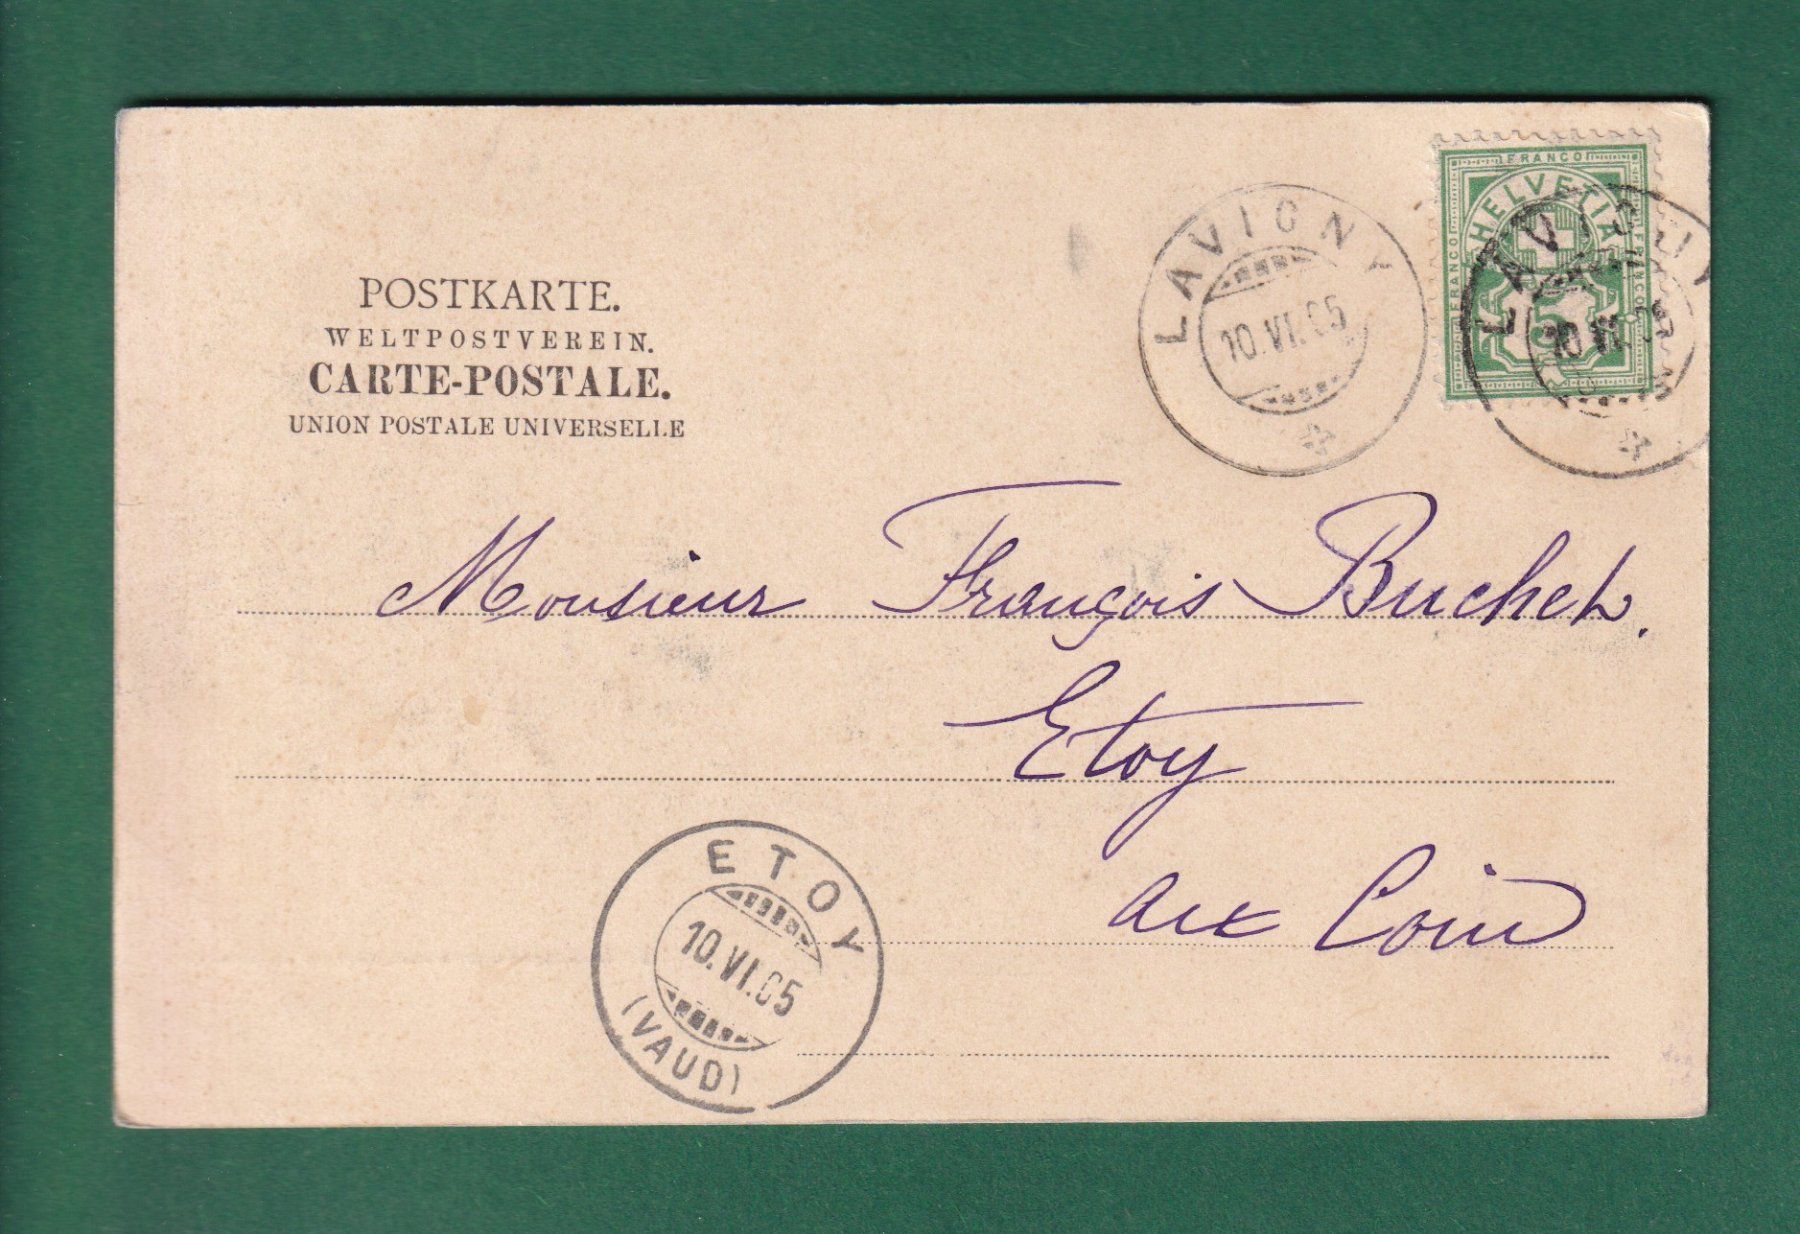 POSTKARTE.
WELTPOSTVEREIN.
CARTE-POSTALE.
UNION POSTALE UNIVERSELLE
LAVIGNY
10.VI.05
FRANCO
HELVETIA
FRANCO
FRANCO
5
LAVIGNY
10 VI 05
Monsieur François Buchet.
Etoy
aux Coin
ETOY
10.VI.05
(VAUD)